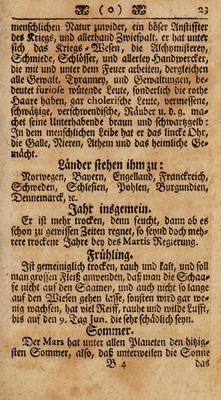 ( o ) 23
menschlichen Natur zuwider, ein böser Anstiffter
des Kriegs, und allerhand Zwispalt, er hat unter
sich das Kriegs-Wesen, die Alchymisterey,
Schmiede, Schlösser, und allerley Handwercker,
die mit und unter dem Feuer arbeiten, dergleichen
alle Gewalt, Tyrannen, und Gewaltungen, be-
deutet furiose wütende Leute, sonderlich die rothe
Haare haben, gar cholerische Leute, vermessene,
schwätzige, verschwendische, Räuber u. d. g. ma-
chet seine Unterhabende braun und schwartzgelb:
In dem menschlichen Leibe hat er das lincke Ohr,
die Galle, Nieren, Athem und das heimliche Ge-
mächt.
Länder stehen ihm zu:
Norwegen, Bayern, Engelland, Franckreich,
Schweden, Schlesien, Pohlen, Burgundien,
Dennemarck, ꝛc.
Jahr insgemein.
Er ist mehr trocken, denn feucht, dann ob es
schon zu gewissen Zeiten regnet, so seynd doch meh-
rere trockene Jahre bey des Martis Regierung.
Frühling.
Ist gemeiniglich trocken, rauh und kalt, und soll
man grossen Fleiß anwenden, daß man die Schaa-
fe nicht auf den Saamen, und auch nicht so lange
auf den Wiesen gehen lasse, sonsten wird gar we-
nig wachsen, hat viel Reiff, rauhe und wilde Lufft,
bis auf den 9. Tag Jun. die sehr schädlich seyn.
Sommer.
Der Mars hat unter allen Planeten den hitzig-
sten Sommer, also, daß unterweilen die Sonne
B 4 das